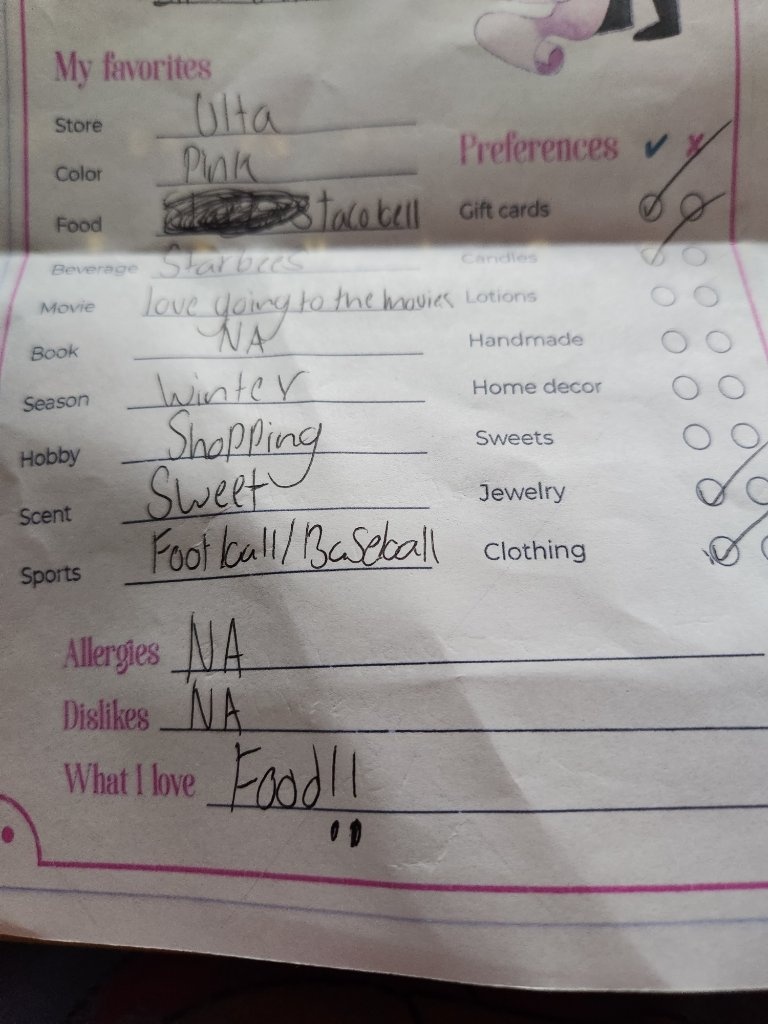 My favorites
Store Ulta
Color Pink
Food Tacobell
Beverage Starbees
Movie love going to the movies
Book NA
Season Winter
Hobby Shopping
Scent Sweet
Sports Football/Baseball
Preferences ✔ ✘
Gift cards
Candles
Lotions
Handmade
Home decor
Sweets
Jewelry
Clothing
Allergies NA
Dislikes NA
What I love Food!!